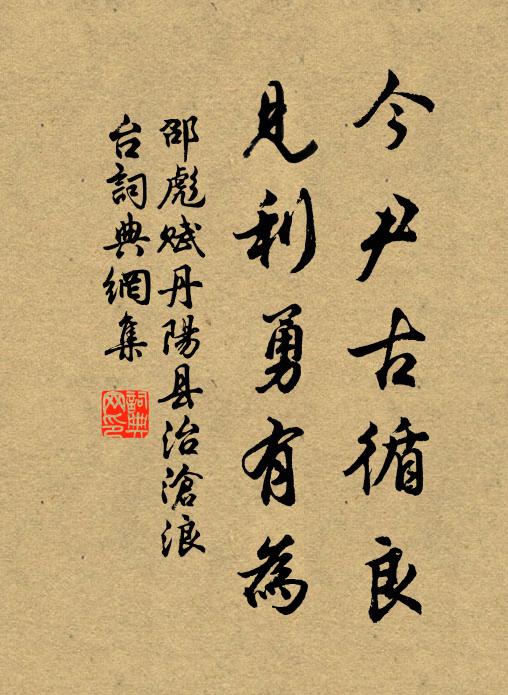 今尹古循良
見利勇有為
邵彪賦丹陽县治滄浪
台詞典網集
詞典网印